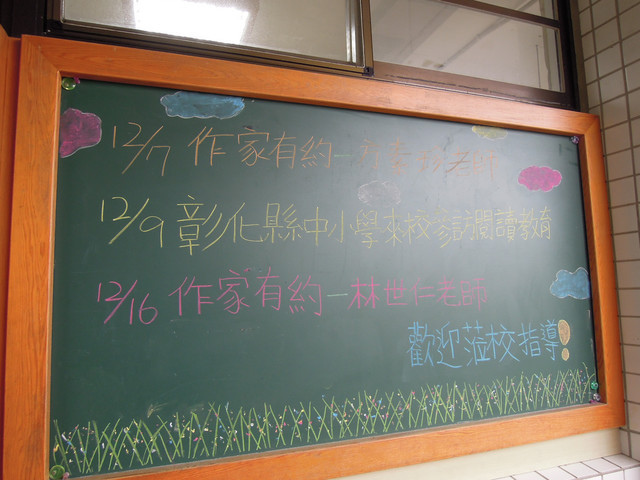 12/7 作家有約—老師
12/9 彰化縣中小學來校參訪閱讀教育
12/16 作家有約—林世仁老師
歡迎蒞校指導!